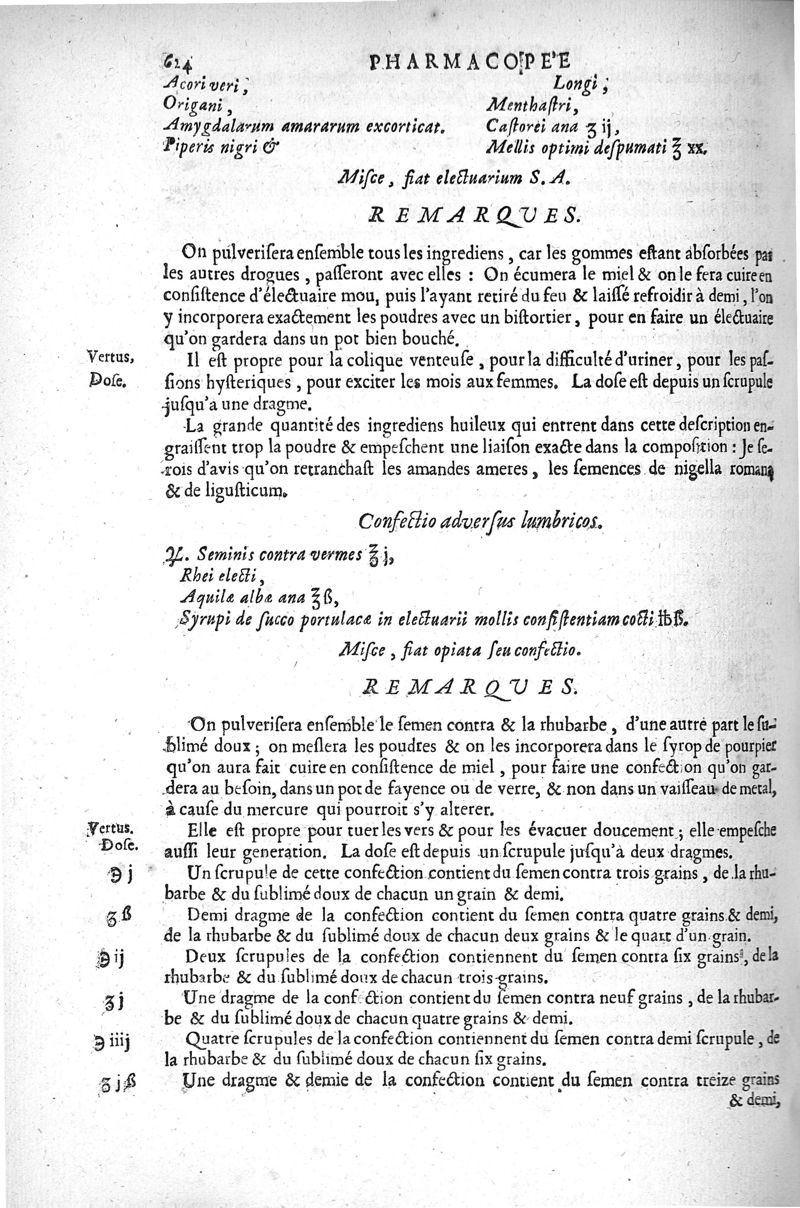 624 PHARMACOPE'E
Acori veri,
Origani,
Amygdalarum amararum excorticat.
Piperis nigri &
Longi,
Menthaſtri,
Caſtorei ana ʒ ij,
Mellis optimi deſpumati ℥ xx.
Miſce, fiat electuarium S. A.
REMARQUES.
On pulveriſera enſemble tous les ingrediens, car les gommes eſtant abſorbées par
les autres drogues, paſſeront avec elles : On écumera le miel & on le fera cuire en
conſiſtence d'électuaire mou, puis l'ayant retiré du feu & laiſſé refroidir à demi, l'on
y incorporera exactement les poudres avec un biſtortier, pour en faire un électuaire
qu'on gardera dans un pot bien bouché.
Vertus,
Doſe.
Il eſt propre pour la colique venteuſe, pour la difficulté d'uriner, pour les paſ-
ſions hyſteriques, pour exciter les mois aux femmes. La doſe eſt depuis un ſcrupule
juſqu'à une dragme.
La grande quantité des ingrediens huileux qui entrent dans cette deſcription en-
graiſſent trop la poudre & empeſchent une liaiſon exacte dans la compoſition : Je ſe-
rois d'avis qu'on retranchaſt les amandes ameres, les ſemences de nigella romana
& de liguſticum.
Confectio adverſus lumbricos.
℞. Seminis contra vermes ℥ j,
Rhei electi,
Aquilæ albæ ana ℥ ß,
Syrupi de ſucco portulacæ in electuarii mollis conſiſtentiam cocti ℔ß.
Miſce, fiat opiata ſeu confectio.
REMARQUES.
On pulveriſera enſemble le ſemen contra & la rhubarbe, d'une autre part le ſu-
blimé doux ; on meſlera les poudres & on les incorporera dans le ſyrop de pourpier
qu'on aura fait cuire en conſiſtence de miel, pour faire une confection qu'on gar-
dera au beſoin, dans un pot de fayence ou de verre, & non dans un vaiſſeau de metal,
à cauſe du mercure qui pourroit s'y alterer.
Vertus.
Doſe.
Elle eſt propre pour tuer les vers & pour les évacuer doucement ; elle empeſche
auſſi leur generation. La doſe eſt depuis un ſcrupule juſqu'à deux dragmes.
℈ j
Un ſcrupule de cette confection contient du ſemen contra trois grains, de la rhu-
barbe & du ſublimé doux de chacun un grain & demi.
ʒ ß
Demi dragme de la confection contient du ſemen contra quatre grains & demi,
de la rhubarbe & du ſublimé doux de chacun deux grains & le quart d'un grain.
℈ ij
Deux ſcrupules de la confection contiennent du ſemen contra ſix grains, de la
rhubarbe & du ſublimé doux de chacun trois grains.
ʒ j
Une dragme de la confection contient du ſemen contra neuf grains, de la rhubar-
be & du ſublimé doux de chacun quatre grains & demi.
℈ iiij
Quatre ſcrupules de la confection contiennent du ſemen contra demi ſcrupule, de
la rhubarbe & du ſublimé doux de chacun ſix grains.
ʒ j ß
Une dragme & demie de la confection contient du ſemen contra treize grains
& demi,